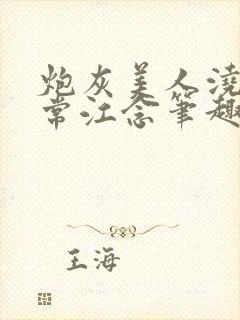 炮灰美人浇
常江念笔趣
王海